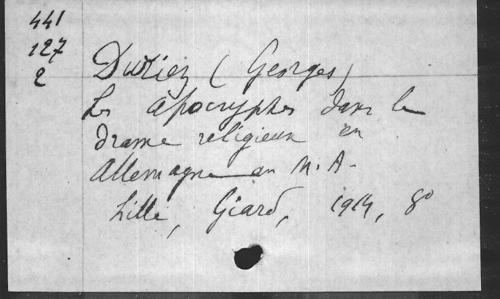 441
127
2
Duriez (Georges)
Les apocryphes dans le
drame religieux en
Allemagne au M.A-
Lille, Giard, 1914, 8º